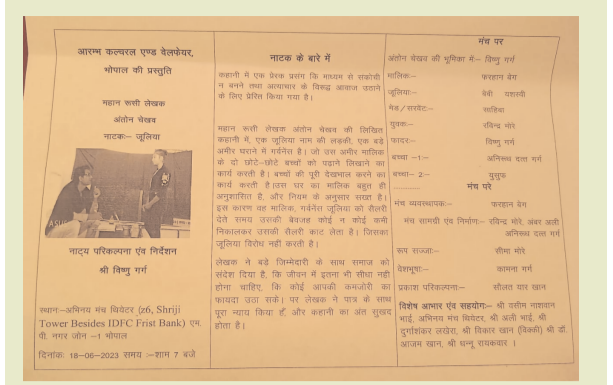 आरम्भ कल्चरल एण्ड वेलफेयर,
भोपाल की प्रस्तुति
महान रूसी लेखक
अंतोन चेखव
नाटकः– जूलिया
नाट्य परिकल्पना एंव निर्देशन
श्री विष्णु गर्ग
स्थानः–अभिनय मंच थियेटर (z6, Shriji
Tower Besides IDFC Frist Bank) एम.
पी. नगर जोन –1 भोपाल
दिनांकः 18-06-2023 समय :–शाम 7 बजे
नाटक के बारे में
कहानी में एक प्रेरक प्रसंग कि माध्यम से संकोची
न बनने तथा अत्याचार के विरूद्ध आवाज उठाने
के लिए प्रेरित किया गया है।
महान रूसी लेखक अंतोन चेखव की लिखित
कहानी में, एक जूलिया नाम की लड़की, एक बड़े
अमीर घराने में गर्वनेस है। जो उस अमीर मालिक
के दो छोटे–छोटे बच्चों को पढ़ाने लिखाने का
कार्य करती है। बच्चों की पूरी देखभाल करने का
कार्य करती है।उस घर का मालिक बहुत ही
अनुशासित है, और नियम के अनुसार सख्त है।
इस कारण वह मालिक, गर्वनेस जूलिया को सैलरी
देते समय उसकी बेवजह कोई न कोई कमी
निकालकर उसकी सैलरी काट लेता है। जिसका
जूलिया विरोध नही करती है।
लेखक ने बडे ज़िम्मेदारी के साथ समाज को
संदेश दिया है, कि जीवन में इतना भी सीधा नहीं
होना चाहिए, कि कोई आपकी कमजोरी का
फायदा उठा सके। पर लेखक ने पात्र के साथ
पूरा न्याय किया हैं, और कहानी का अंत सुखद
होता है।
मंच पर
अंतोन चेखव की भूमिका में:– विष्णु गर्ग
मालिकः– फरहान बेग
जूलियाः– बेबी यशस्वी
मेड/सरवेंटः– साहिबा
युवकः– रविन्द्र मोरे
फादरः– विष्णु गर्ग
बच्चा –1:– अनिरूध दत्त गर्ग
बच्चा– 2:– युसुफ
............ मंच परे
मंच व्यवस्थापकः– फरहान बेग
मंच सामग्री एंव निर्माणः– रविन्द्र मोरे, अंबर अली
अनिरूध दत्त गर्ग
रूप सज्जाः– सीमा मोरे
वेशभूषाः– कामना गर्ग
प्रकाश परिकल्पनाः– सीलत यार खान
विशेष आभार एंव सहयोगः– श्री वसीम नाशवान
भाई, अभिनय मंच थियेटर, श्री अली भाई, श्री
दुर्गाशंकर लखेरा, श्री विकार खान (विक्की) श्री डॉ.
आजम खान, श्री धन्नू रायकवार ।